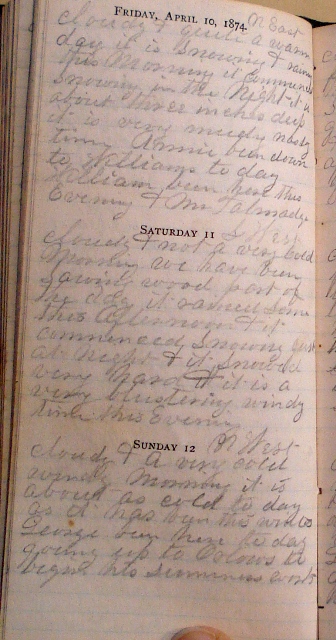 FRIDAY, APRIL 10, 1874.
N East
cloudy & quite a warm
day it is snowing & raining
this Morning it commenced
snowing in the Night it is
about three inches deep
it is very muddy nasty
time Annie been down
to Williams to day
William been here this
Evening & Mr Talmadge
SATURDAY 11
West
cloudy & not a very cold
Morning we have been
sawing wood part of
the day it rained some
this Afternoon & it
commenced snowing just
at Night & it snowed
very hard & it is a
very blustering windy
time this Evening
SUNDAY 12
N West
cloudy & a very cold
windy Morning it is
about as cold to day
as it has been this winter
George been here to day
going up to to
begin his summers work